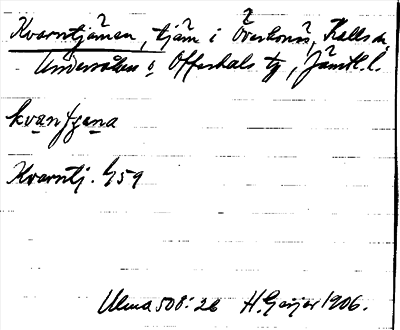 Kvarntjärnen, tjärn i Överhonäs, Kalls sn,
Undersåkers o. Offerdals tg, Jämtl. l.
kvantjena
Kvarntj. G59
Ulma 508:26 H. Geijer 1906.